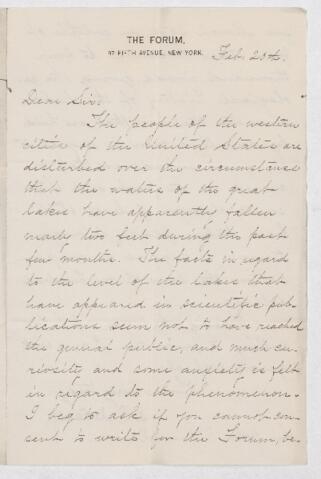 THE FORUM,
97 FIFTH AVENUE, NEW YORK.
Feb. 20th.
Dear Sir:
The people of the western
cities of the United States are
disturbed over the circumstance
that the waters of the great
lakes have apparently fallen
nearly two feet during the past
few months. The facts in regard
to the level of the lakes that
have appeared in scientific pub-
lications seem not to have reached
the general public, and much cu-
riosity and some anxiety is felt
in regard to the phenomenon.
I beg to ask if you cannot con-
sent to write for the Forum, be-